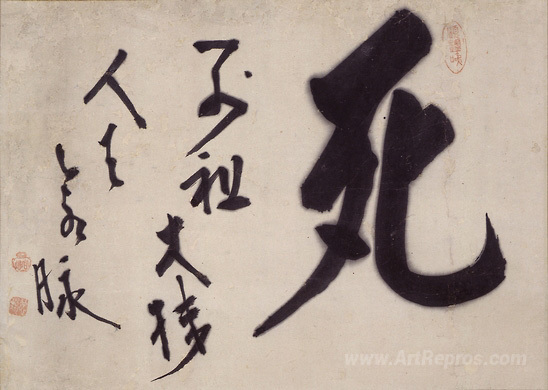 死
佛祖大機
人天命脉
www.ArtRepros.com